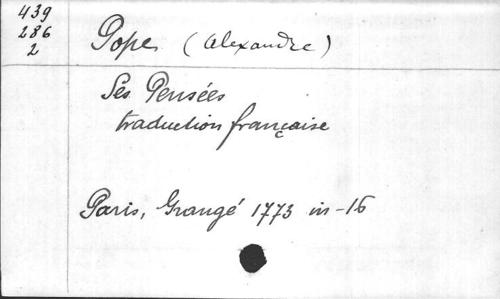 439
286
2
Pope (Alexandre)
Ses Pensées
traduction française
Paris, Grangé 1773 in-16